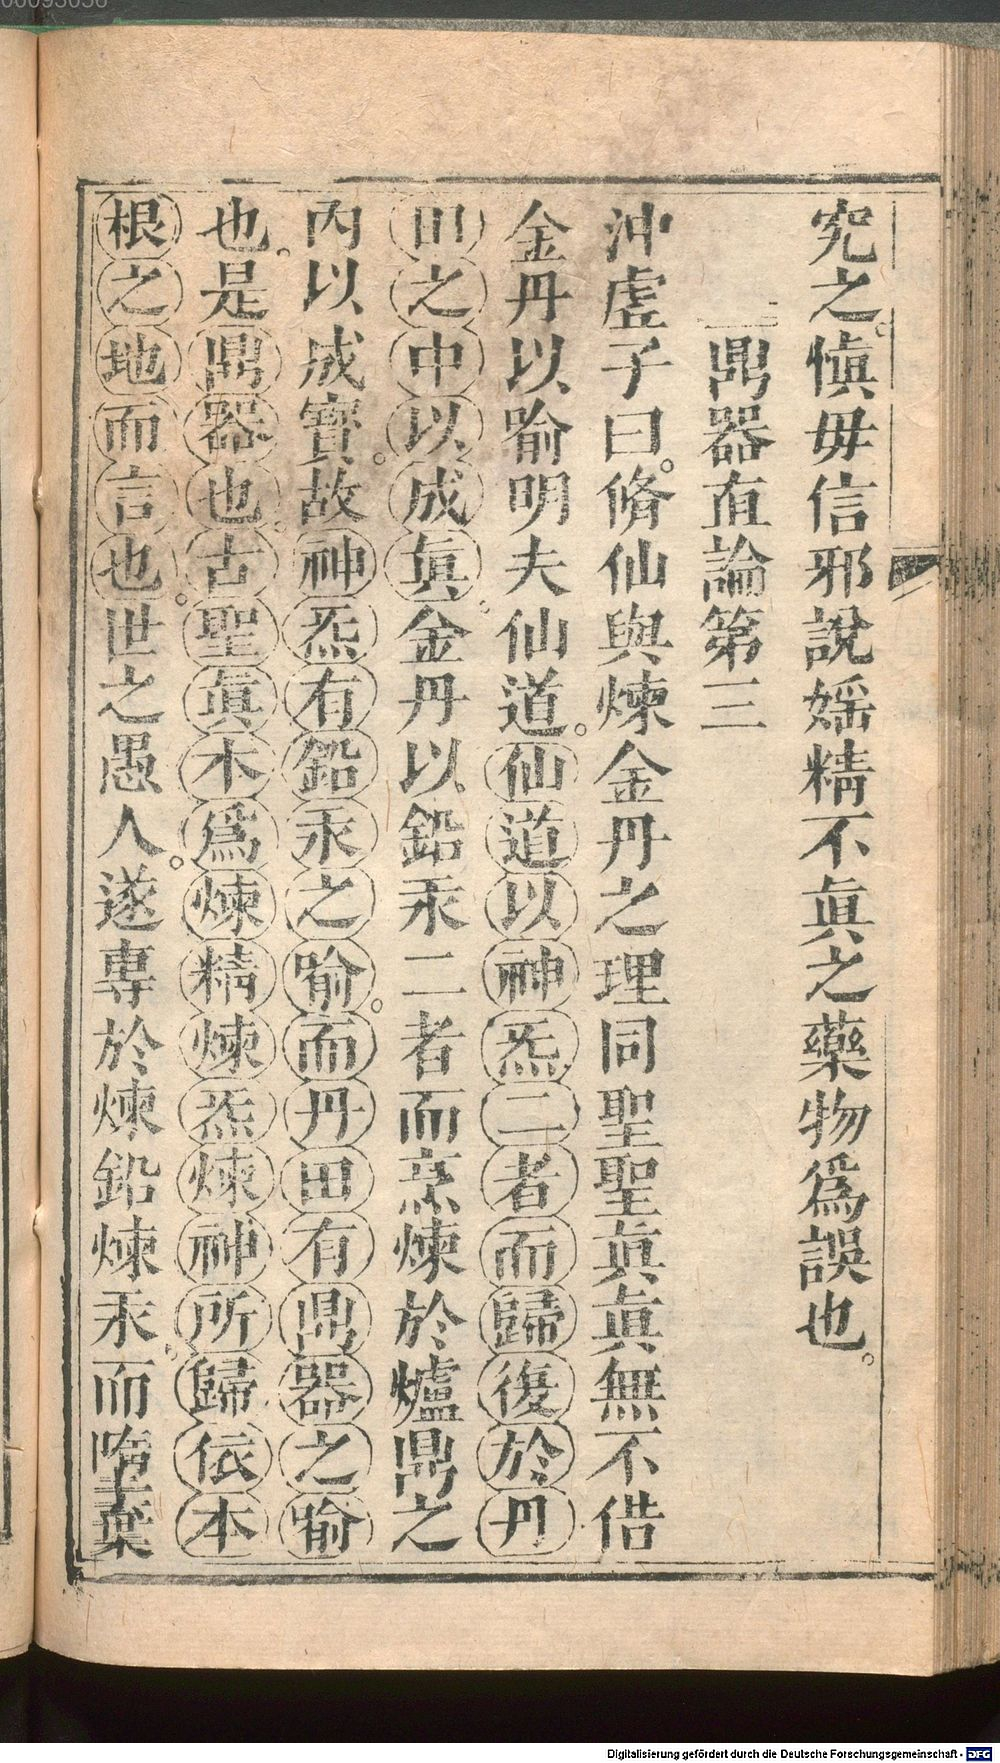 究之。愼毋信邪說婬精不眞之藥物爲誤也。
鼎器直論第三
沖虛子曰。脩仙與煉金丹之理同聖聖眞眞無不借
金丹以喻明夫仙道。仙道以神炁二者而歸復於丹
田之中以成眞。金丹以鉛汞二者而烹煉於爐鼎之
內以成寶。故神炁有鉛汞之喻。而丹田有鼎器之喻
也。是鼎器也。古聖眞本爲煉精煉炁煉神所歸依本
根之地而言也。世之愚人。遂專於煉鉛煉汞。而墮棄
Digitalisierung gefördert durch die Deutsche Forschungsgemeinschaft - DFG